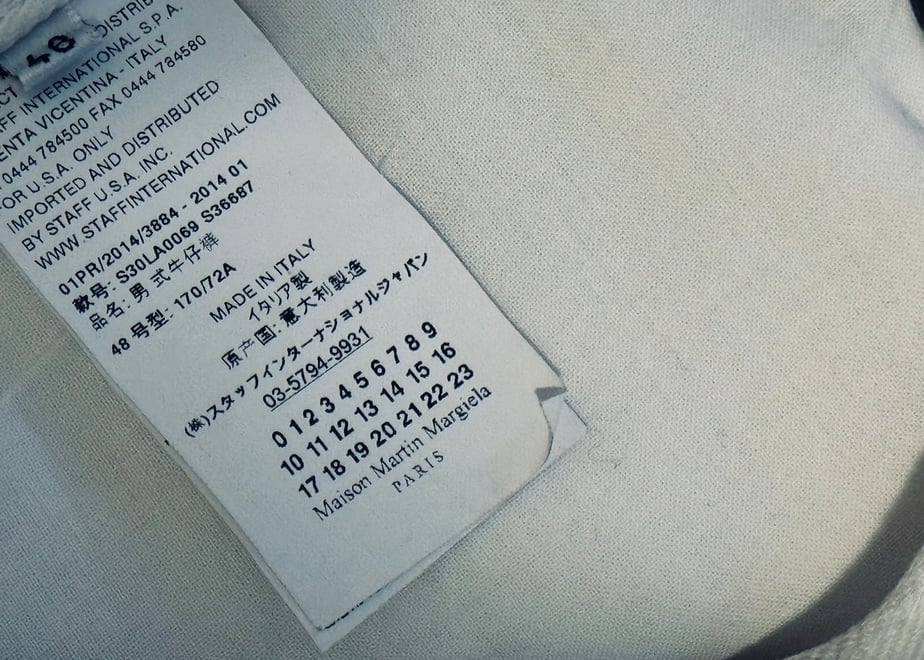 48
DISTRIB
FF INTERNATIONAL S.P.A.
ENTA VICENTINA - ITALY
0444 784500 FAX 0444 784580
OR U.S.A. ONLY
IMPORTED AND DISTRIBUTED
BY STAFF U.S.A. INC.
WWW.STAFFINTERNATIONAL.COM
01PR/2014/3884 - 2014 01
款号: S30LA0069 S36687
品名: 男式牛仔裤
48 号型: 170/72A
MADE IN ITALY
イタリア製
原产国: 意大利製造
(株)スタッフインターナショナルジャパン
03-5794-9931
0 1 2 3 4 5 6 7 8 9
10 11 12 13 14 15 16
17 18 19 20 21 22 23
Maison Martin Margiela
PARIS